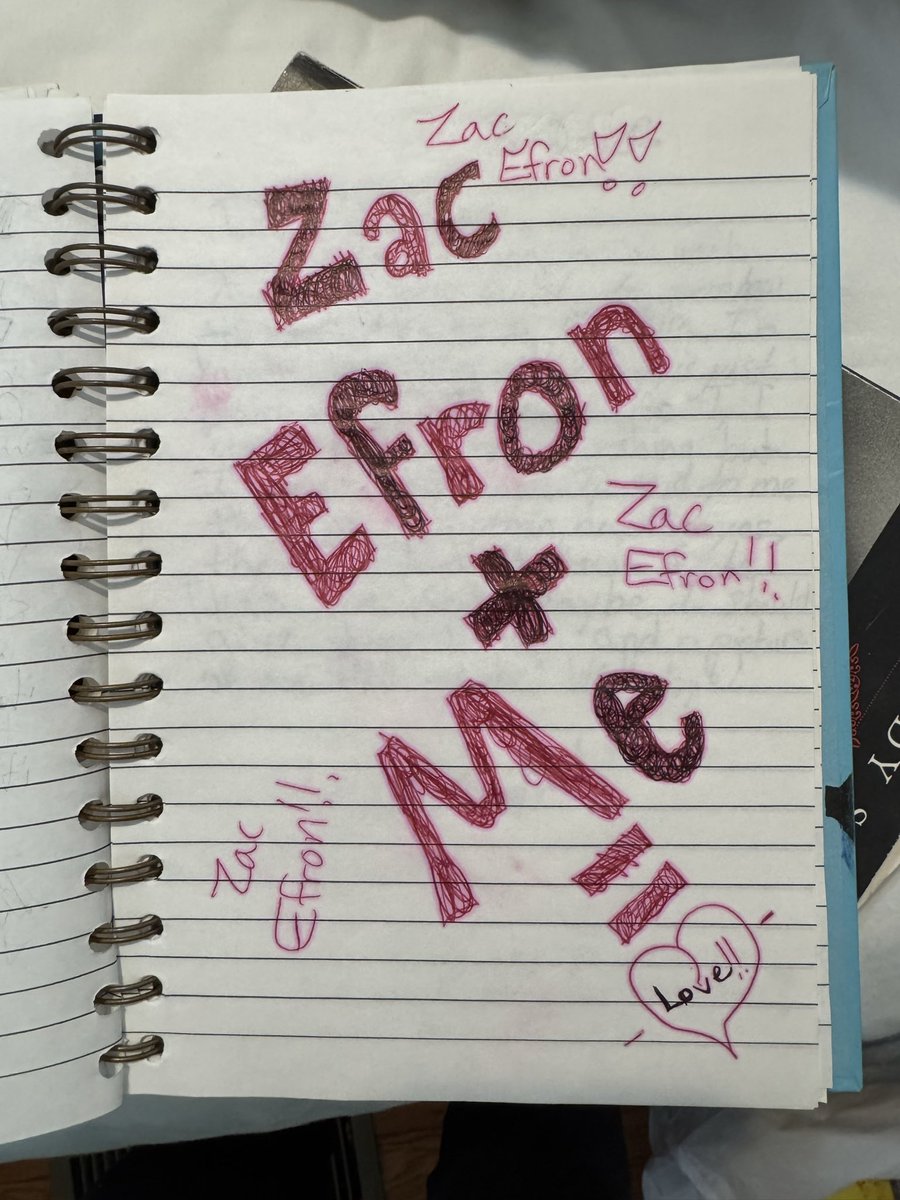 Zac
Efron!!
Zac
Efron
Zac
Efron!!
+
Me
=
Love!!
Zac
Efron!!